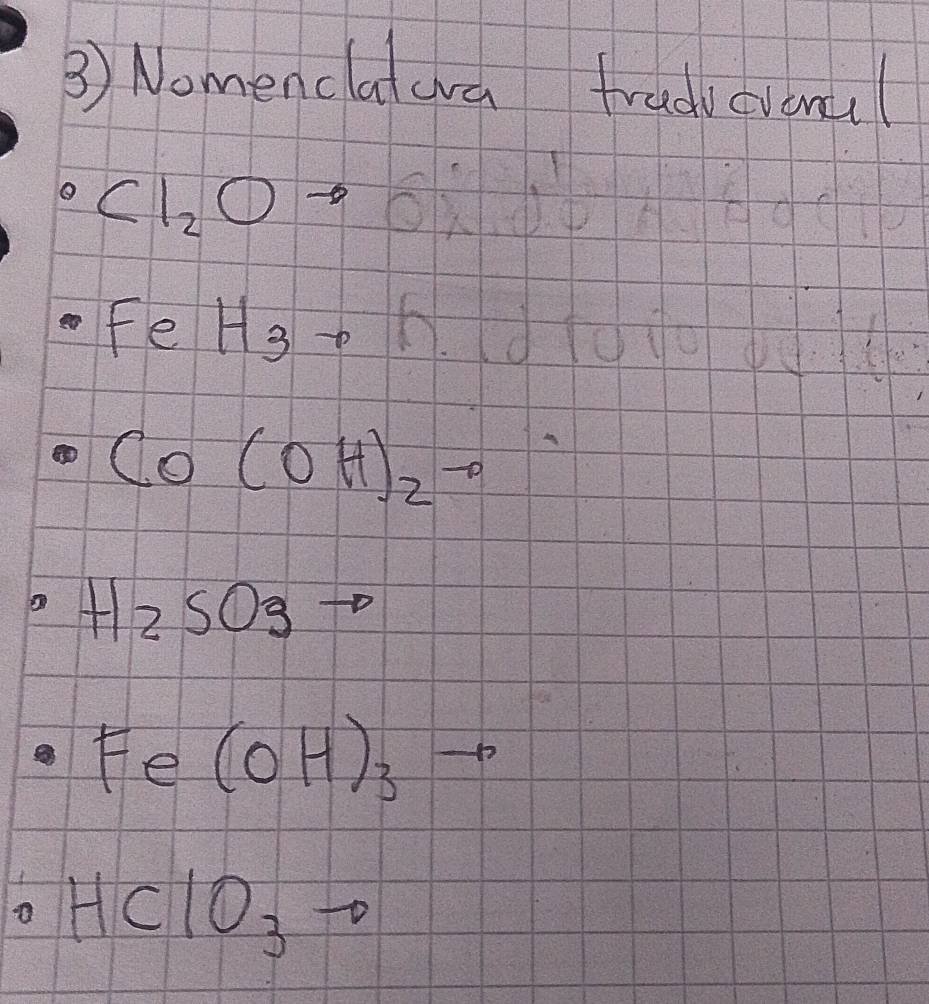 3) Nomenclatura tradicional
• Cl₂O →
• FeH₃ →
• Co(OH)₂ →
• H₂SO₃ →
• Fe(OH)₃ →
• HClO₃ →